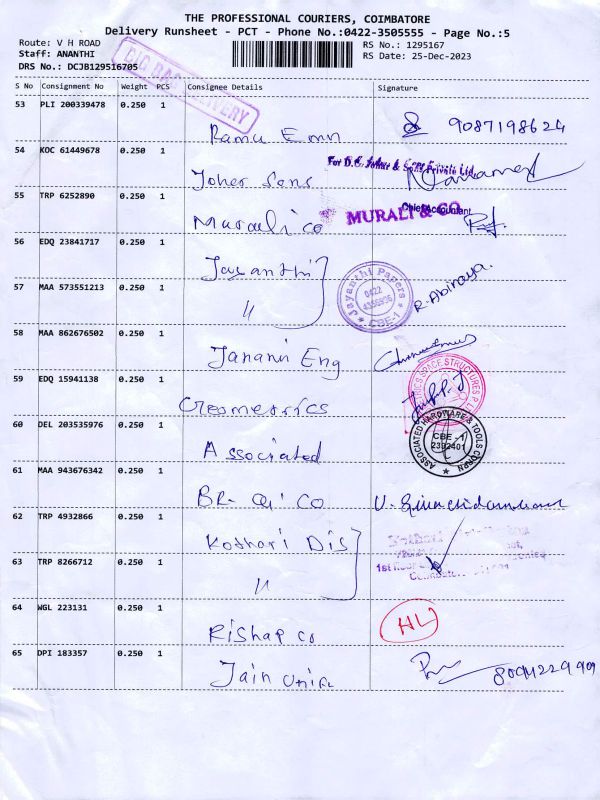 THE PROFESSIONAL COURIERS, COIMBATORE
Delivery Runsheet - PCT - Phone No.:0422-3505555 - Page No.:5
Route: V H ROAD
RS No.: 1295167
Staff: ANANTHI
RS Date: 25-Dec-2023
DRS No.: DCJB129516705
S No Consignment No Weight PCS Consignee Details Signature
53 PLI 200339478 0.250 1
Ramu E mn 9087198624
54 KOC 61449678 0.250 1
For D.C. & Sons Private Ltd.
Joher Sons
Chief Accountant
55 TRP 6252890 0.250 1
Murauli co MURALI & CO
56 EDQ 23841717 0.250 1
Jayanthi
Jayanthi Papers
0422
CBE-1
57 MAA 573551213 0.250 1
〃 R. Abinaya.
58 MAA 862676502 0.250 1
Janani Eng
59 EDQ 15941138 0.250 1
SPACE STRUCTURES P
Geometrics
60 DEL 203535976 0.250 1
ASSOCIATED HARDWARE & TOOLS CORPN
CBE - 1
2392401
Associated
61 MAA 943676342 0.250 1
BR- Oi Co
62 TRP 4932866 0.250 1
Kothari Dis
63 TRP 8266712 0.250 1
1st floor
〃
64 WGL 223131 0.250 1
Rishap Co HL
65 DPI 183357 0.250 1
Jain